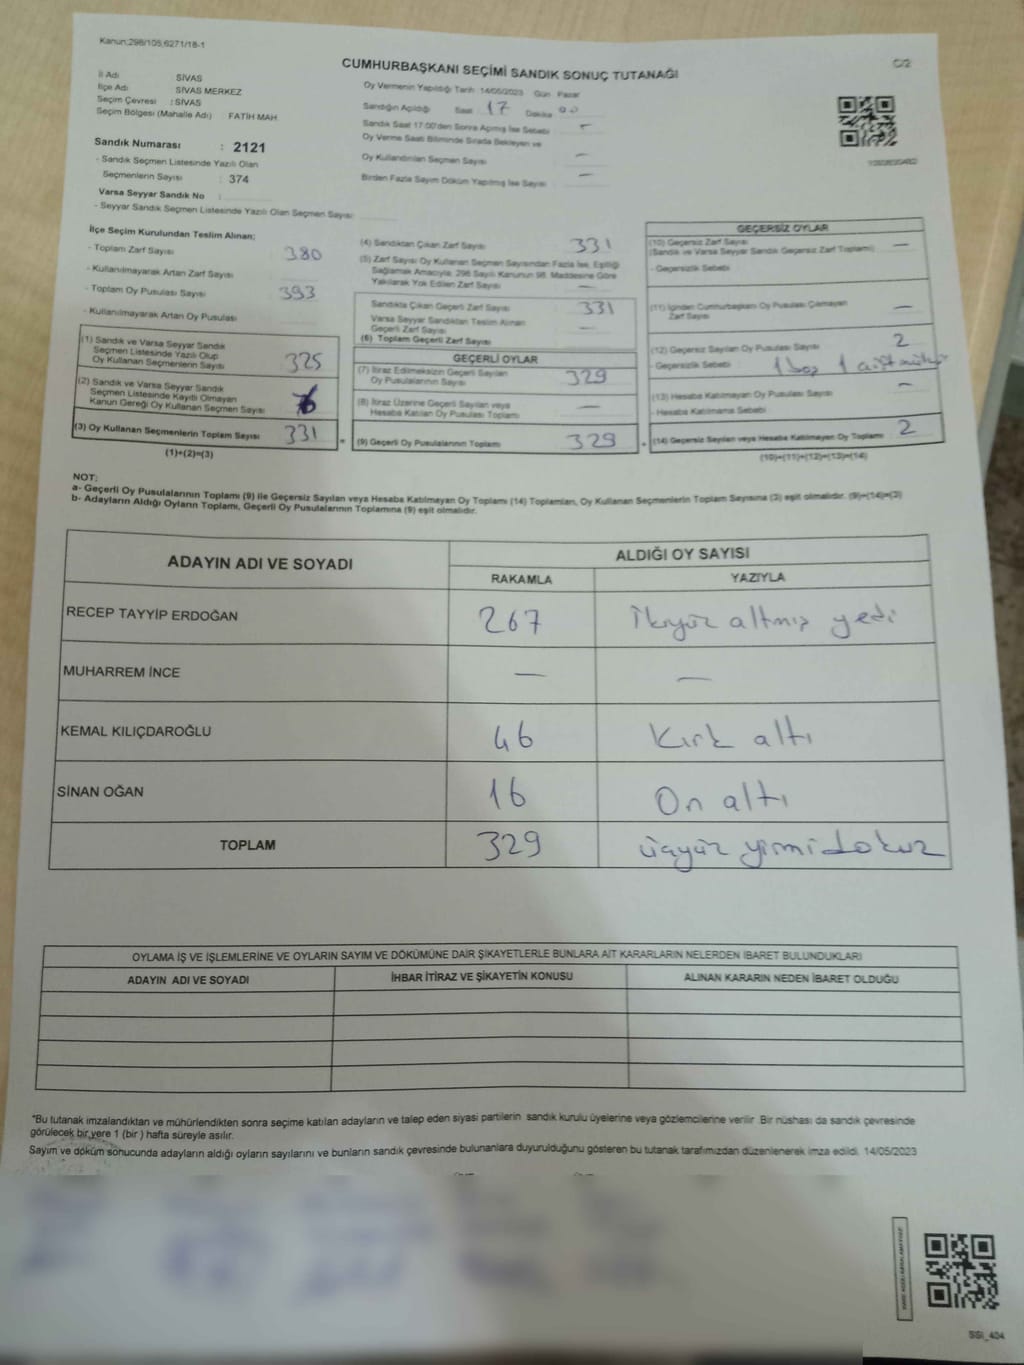 Kanun;298/105,6271/18-1
C/2
CUMHURBAŞKANI SEÇİMİ SANDIK SONUÇ TUTANAĞI
İl Adı SİVAS
İlçe Adı SİVAS MERKEZ
Seçim Çevresi : SİVAS
Seçim Bölgesi (Mahalle Adı) FATİH MAH.
Sandık Numarası : 2121
- Sandık Seçmen Listesinde Yazılı Olan
Seçmenlerin Sayısı : 374
Varsa Seyyar Sandık No :
- Seyyar Sandık Seçmen Listesinde Yazılı Olan Seçmen Sayısı
Oy Vermenin Yapıldığı Tarih 14/05/2023 Gün Pazar
Sandığın Açıldığı Saat 17 Dakika 00
Sandık Saat 17:00'den Sonra Açmış İse Sebebi -
Oy Verme Saati Bitiminde Sırada Bekleyen ve
Oy Kullandırılan Seçmen Sayısı —
Birden Fazla Sayım Döküm Yapılmış İse Sayısı —
İlçe Seçim Kurulundan Teslim Alınan;
- Toplam Zarf Sayısı 380
- Kullanılmayarak Artan Zarf Sayısı
- Toplam Oy Pusulası Sayısı 393
- Kullanılmayarak Artan Oy Pusulası
(1) Sandık ve Varsa Seyyar Sandık
Seçmen Listesinde Yazılı Olup
Oy Kullanan Seçmenlerin Sayısı 325
(2) Sandık ve Varsa Seyyar Sandık
Seçmen Listesinde Kayıtlı Olmayan
Kanun Gereği Oy Kullanan Seçmen Sayısı 6
(3) Oy Kullanan Seçmenlerin Toplam Sayısı 331
(1)+(2)=(3)
(4) Sandıktan Çıkan Zarf Sayısı 331
(5) Zarf Sayısı Oy Kullanan Seçmen Sayısından Fazla İse, Eşitliği
Sağlamak Amacıyla, 298 Sayılı Kanunun 98. Maddesine Göre
Yakılarak Yok Edilen Zarf Sayısı —
Sandıkta Çıkan Geçerli Zarf Sayısı 331
Varsa Seyyar Sandıktan Teslim Alınan
Geçerli Zarf Sayısı —
(6) Toplam Geçerli Zarf Sayısı
GEÇERLİ OYLAR
(7) İtiraz Edilmeksizin Geçerli Sayılan
Oy Pusulalarının Sayısı 329
(8) İtiraz Üzerine Geçerli Sayılan veya
Hesaba Katılan Oy Pusulası Toplamı —
= (9) Geçerli Oy Pusulalarının Toplamı 329
GEÇERSİZ OYLAR
(10) Geçersiz Zarf Sayısı —
(Sandık ve Varsa Seyyar Sandık Geçersiz Zarf Toplamı)
- Geçersizlik Sebebi
(11) İçinden Cumhurbaşkanı Oy Pusulası Çıkmayan
Zarf Sayısı —
(12) Geçersiz Sayılan Oy Pusulası Sayısı 2
- Geçersizlik Sebebi 1 boş 1 çift mühür
(13) Hesaba Katılmayan Oy Pusulası Sayısı —
- Hesaba Katılmama Sebebi
+ (14) Geçersiz Sayılan veya Hesaba Katılmayan Oy Toplamı 2
(10)+(11)+(12)+(13)=(14)
NOT;
a- Geçerli Oy Pusulalarının Toplamı (9) ile Geçersiz Sayılan veya Hesaba Katılmayan Oy Toplamı (14) Toplamları, Oy Kullanan Seçmenlerin Toplam Sayısına (3) eşit olmalıdır. (9)+(14)=(3)
b- Adayların Aldığı Oyların Toplamı, Geçerli Oy Pusulalarının Toplamına (9) eşit olmalıdır.
ADAYIN ADI VE SOYADI ALDIĞI OY SAYISI
RAKAMLA YAZIYLA
RECEP TAYYİP ERDOĞAN 267 İkiyüz altmış yedi
MUHARREM İNCE — —
KEMAL KILIÇDAROĞLU 46 Kırk altı
SİNAN OĞAN 16 On altı
TOPLAM 329 üçyüz yirmidokuz
OYLAMA İŞ VE İŞLEMLERİNE VE OYLARIN SAYIM VE DÖKÜMÜNE DAİR ŞİKAYETLERLE BUNLARA AİT KARARLARIN NELERDEN İBARET BULUNDUKLARI
ADAYIN ADI VE SOYADI İHBAR İTİRAZ VE ŞİKAYETİN KONUSU ALINAN KARARIN NEDEN İBARET OLDUĞU
*Bu tutanak imzalandıktan ve mühürlendikten sonra seçime katılan adayların ve talep eden siyasi partilerin sandık kurulu üyelerine veya gözlemcilerine verilir. Bir nüshası da sandık çevresinde
görülecek bir yere 1 (bir ) hafta süreyle asılır.
Sayım ve döküm sonucunda adayların aldığı oyların sayılarını ve bunların sandık çevresinde bulunanlara duyurulduğunu gösteren bu tutanak tarafımızdan düzenlenerek imza edildi. 14/05/2023
SSI_404